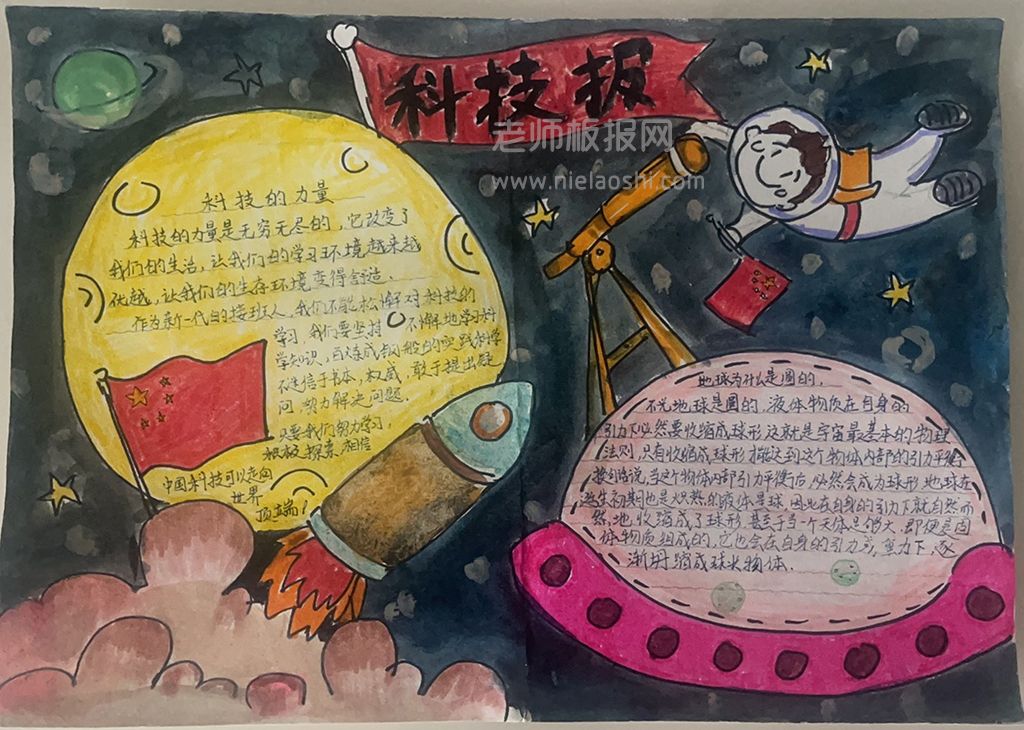 科技报
老师板报网
www.nielaoshi.com
科技的力量
科技的力量是无穷无尽的，它改变了
我们的生活，让我们的学习环境越来越
优越，让我们的生存环境变得舒适．
作为新一代的接班人，我们不能松懈对科技的
学习，我们要坚持不懈地学习科
学知识，百炼成钢般的实践科学
不迷信于书本，权威，敢于提出疑
问 努力解决问题．
只要我们努力学习，
积极探索 相信
中国科技可以走向
世界
顶端！
地球为什么是圆的．
不光地球是圆的，液体物质在自身的
引力下必然要收缩成球形 这就是宇宙最基本的物理
法则，只有收缩成球形 才能达到这个物体内部的引力平衡
换句话说，当这个物体内部引力平衡后，必然会成为球形 地球在
诞生初期也是炽热的液体星球 因此在自身的引力下就自然而
然地，收缩成了球形 甚至于当一个天体足够大，即便是固
体物质组成的，它也会在自身的引力，重力下，逐
渐坍缩成球状物体．